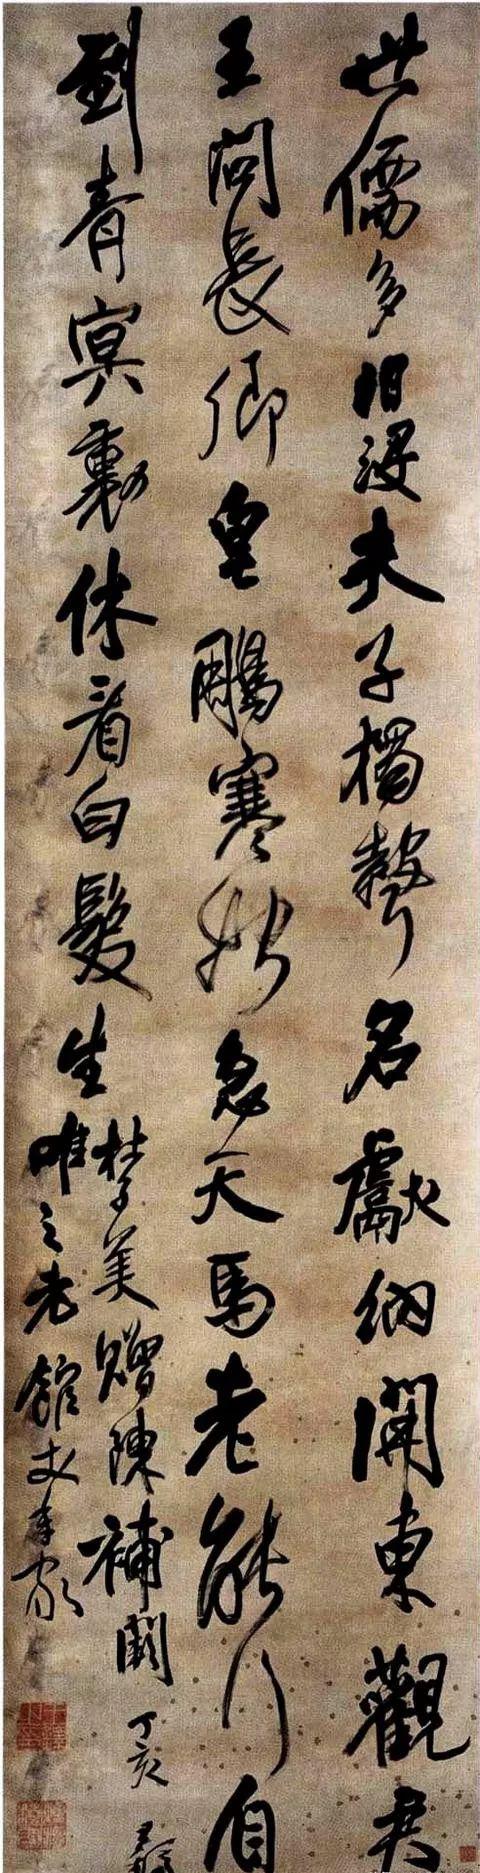 世儒多汩没夫子獨聲名獻納開東觀君
王問長卿皂鵰寒始急天馬老能行自
到青冥裏休看白髮生
杜子美贈陳補闕 丁亥 王鐸
唯之老館丈年家